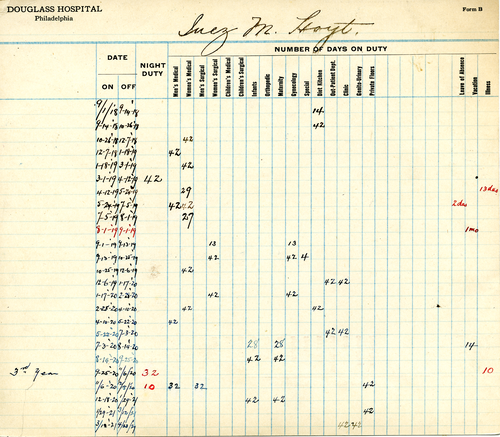 DOUGLASS HOSPITAL
Philadelphia
Form B
Inez M. Hoyt.
NUMBER OF DAYS ON DUTY
DATE
ON OFF
NIGHT DUTY
Men's Medical
Women's Medical
Men's Surgical
Women's Surgical
Children's Medical
Children's Surgical
Infants
Orthopedic
Maternity
Gynecology
Special
Diet Kitchen
Out Patient Dept.
Clinic
Genito-Urinary
Private Floors
Leave of Absence
Vacation
Illness
9/1/18 9-14-18 14
9-14-18 10-26-18 42
10-26-18 12-7-18 42
12-7-18 1-18-19 42
1-18-19 3-1-19 42
3-1-19 4-12-19 42
4-12-19 5-24-19 29 13 das
5-24-19 7-5-19 42 42 2 das
7-5-19 8-1-19 27
8-1-19 9-1-19 1 mo
9-1-19 9-13-19 13 13
9-13-19 10-25-19 42 42 4
10-25-19 12-6-19 42
12-6-19 1-17-20 42 42
1-17-20 2-28-20 42 42
2-25-20 4-10-20 42
4-10-20 5-22-20 42
5-22-20 7-3-20 42 42
7-3-20 8-14-20 28 28 14
8-14-20 9-25-20 42 42
3rd Year 9-25-20 11/6/20 32 10
11/6-20 12/18/20 10 32 32 42
12-18-20 1/29-21 42 42
1/29-21 3/12/21 42
3/12/21 4/23/21 42 42